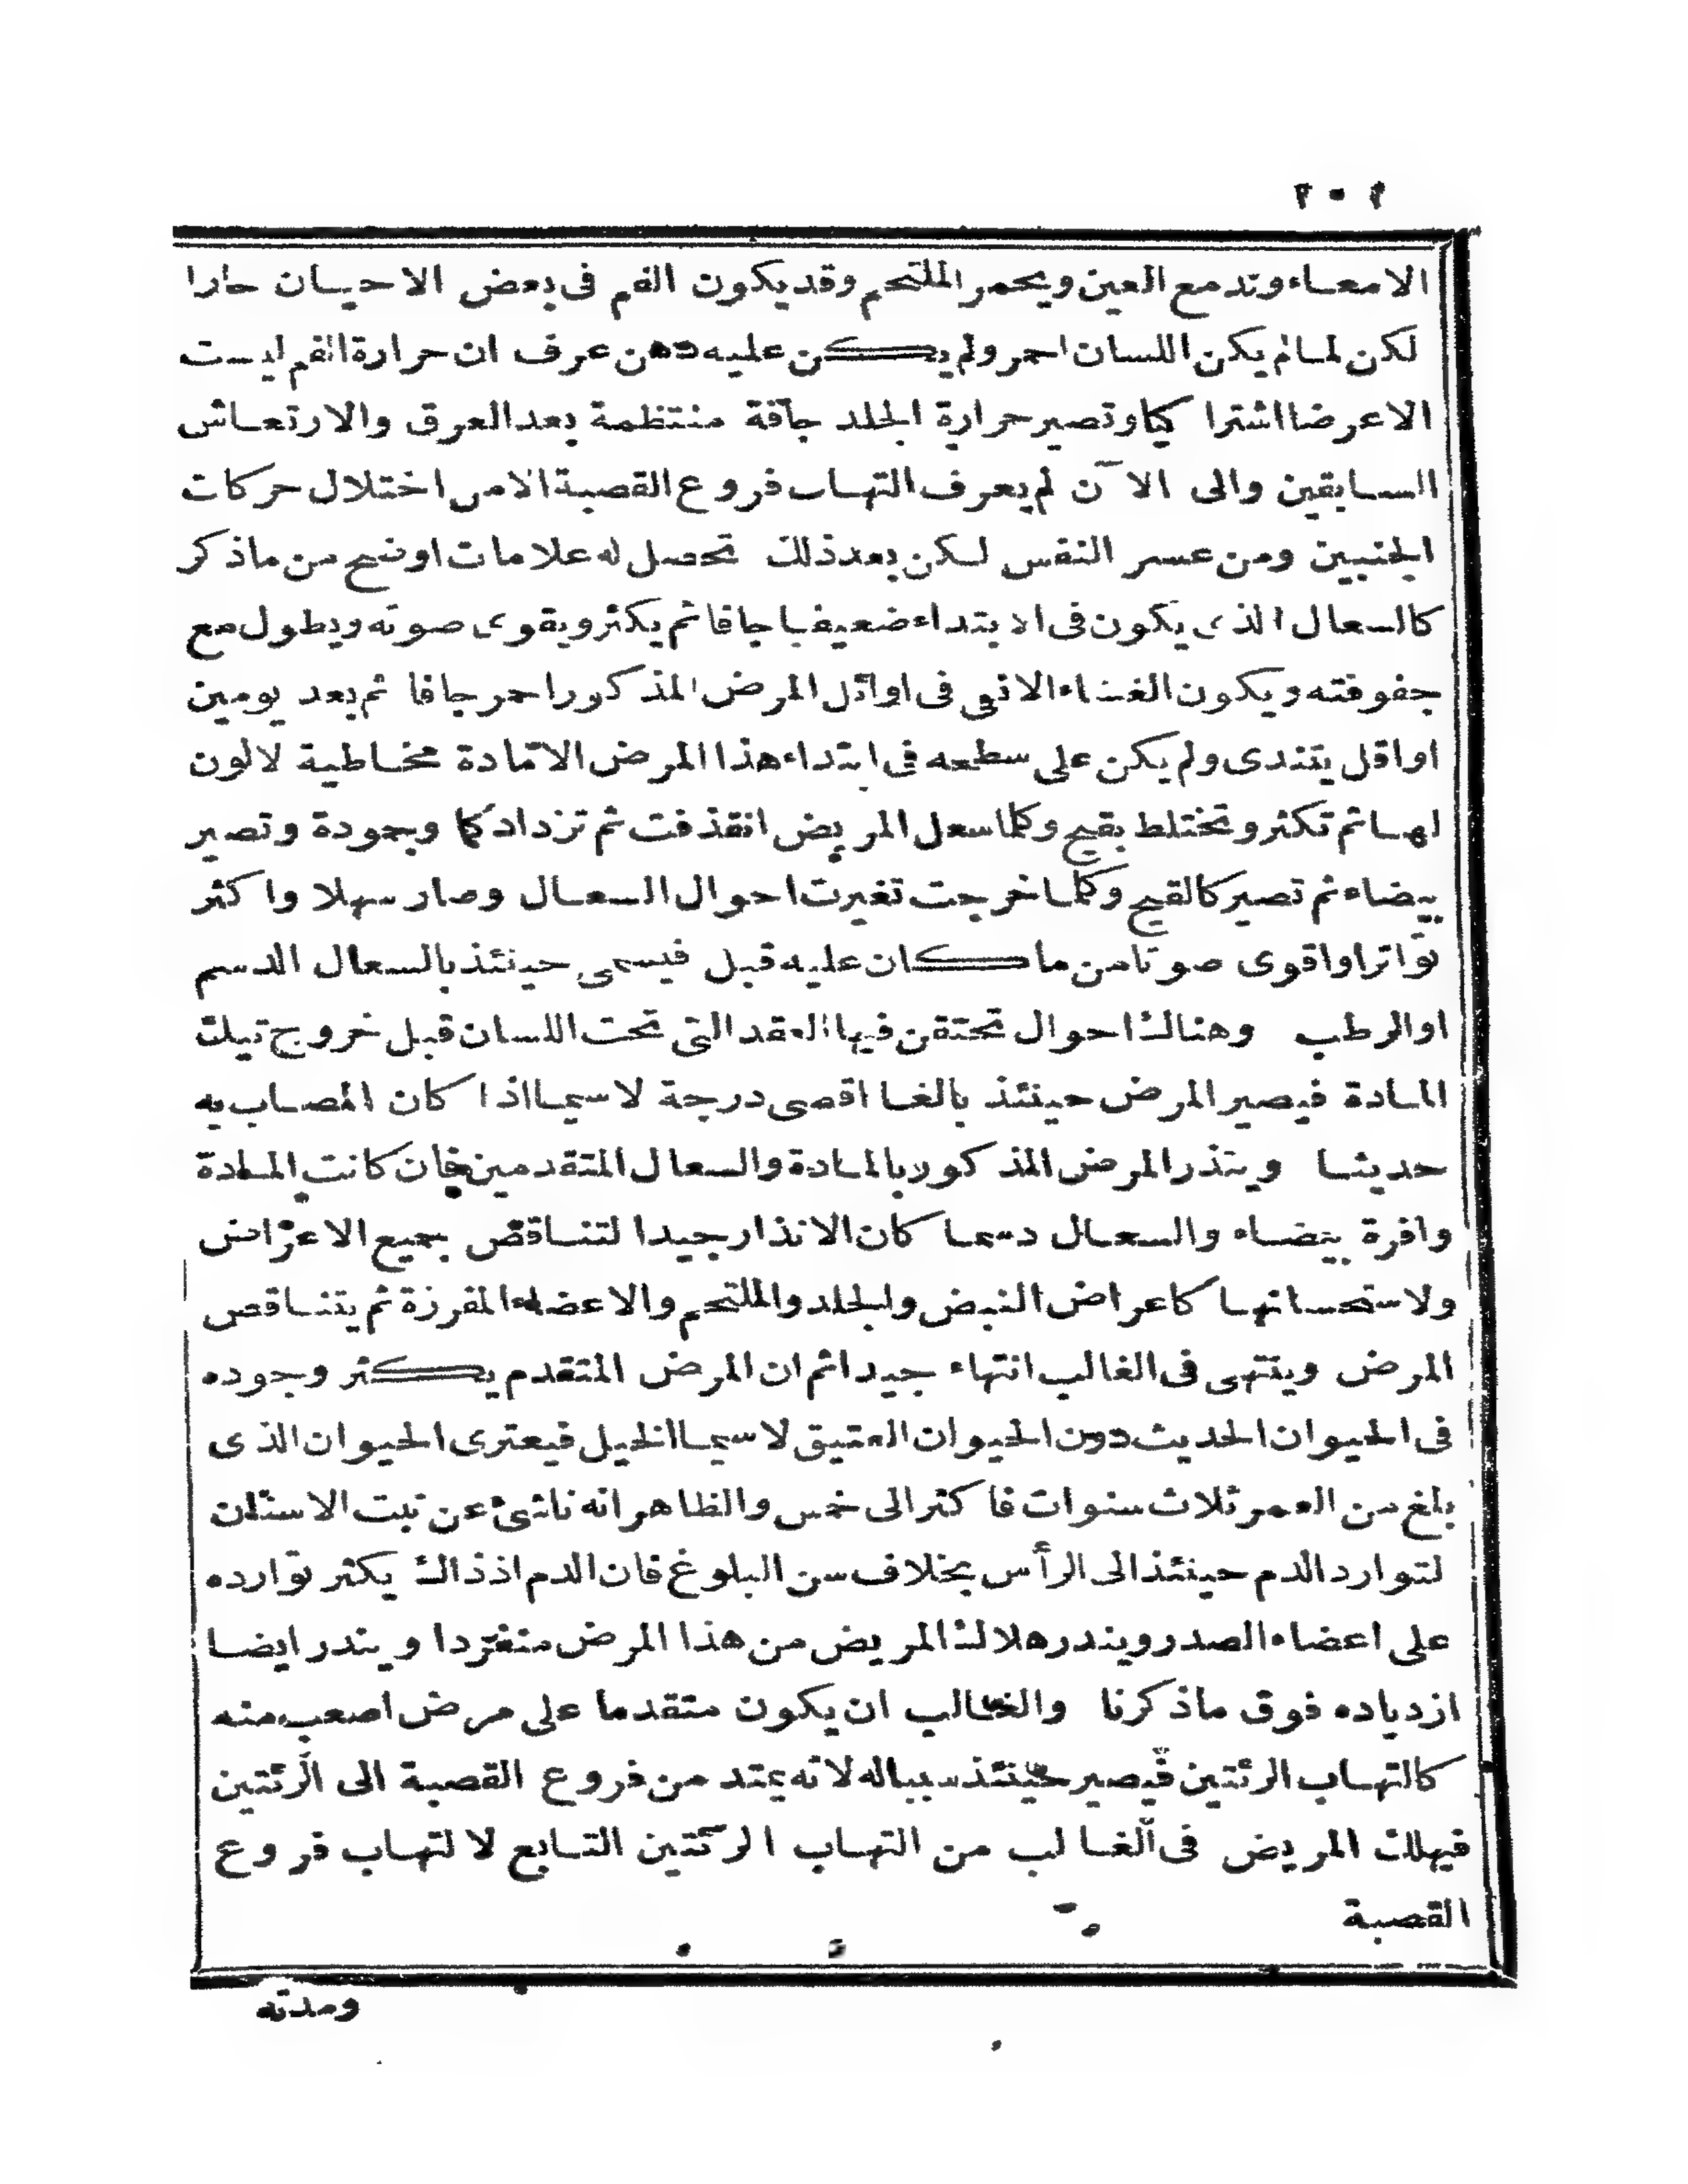 ٢٠٢
الامعاء وتدمع العين ويحمر الملتحم وقد يكون الفم فى بعض الاحيان حارا
لكن لما لم يكن اللسان احمر ولم يكن عليه دهن عرف ان حرارة الفم ليست
الاعرضا اشتراكيا وتصير حرارة الجلد جافة منتظمة بعد العرق والارتعاش
السابقين والى الآن لم يعرف التهاب فروع القصبة الا من اختلال حركات
الجنبين ومن عسر النفس لكن بعد ذلك تحصل له علامات اوضح من ماذكر
كالسعال الذى يكون فى الابتداء ضعيفا جافا ثم يكثر ويقوى صوته ويطول مع
جفوفته ويكون الغشاء الانفى فى اوائل المرض المذكور احمر جافا ثم بعد يومين
او اقل يتندى ولم يكن على سطحه فى ابتداء هذا المرض الا مادة مخاطية لا لون
لها ثم تكثر وتختلط بقيح وكلما سعل المريض انقذفت ثم تزداد كما وجودة وتصير
بيضاء ثم تصير كالقيح وكلما خرجت تغيرت احوال السعال وصار سهلا واكثر
تواترا واقوى صوتا من ما كان عليه قبل فيسمى حينئذ بالسعال الدسم
او الرطب وهناك احوال تحتقن فيها العقد التى تحت اللسان قبل خروج تيك
المادة فيصير المرض حينئذ بالغا اقصى درجة لاسيما اذا كان المصاب به
حديثا وينذر المرض المذكور بالمادة والسعال المتقدمين فان كانت المادة
وافرة بيضاء والسعال دسما كان الانذار جيدا لتناقص جميع الاعراض
ولاستحسانها كاعراض النبض والجلد والملتحم والاعضاء المفرزة ثم يتناقص
المرض وينتهى فى الغالب انتهاء جيدا ثم ان المرض المتقدم يكثر وجوده
فى الحيوان الحديث دون الحيوان العتيق لاسيما الخيل فيعترى الحيوان الذى
بلغ من العمر ثلاث سنوات فاكثر الى خمس والظاهر انه ناشئ عن نبت الاسنان
لتوارد الدم حينئذ الى الرأس بخلاف سن البلوغ فان الدم اذ ذاك يكثر توارده
على اعضاء الصدر ويندر هلاك المريض من هذا المرض منفردا ويندر ايضا
ازدياده فوق ماذكرنا والغالب ان يكون متقدما على مرض اصعب منه
كالتهاب الرئتين فيصير حينئذ سبباله لانه يمتد من فروع القصبة الى الرئتين
فيهلك المريض فى الغالب من التهاب الرئتين التابع لالتهاب فروع
القصبة
ومدته